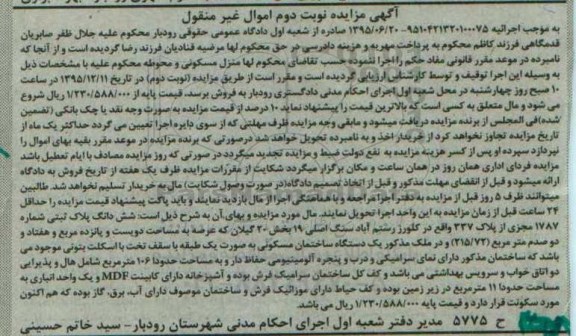 آگهی مزایده نوبت دوم اموال غیر منقول
به موجب اجرائیه ۹۵۱۰۴۲۱۳۲۰۱۰۰۰۷۵–۱۳۹۵/۰۶/۲۰ صادره از شعبه اول دادگاه عمومی حقوقی رودبار محکوم علیه جلال ظفر صابریان
قدمگاهی فرزند کاظم محکوم به پرداخت مهریه و هزینه دادرسی در حق محکوم لها مرضیه قنادیان فرزند رضا گردیده است و از آنجا که
نامبرده در موعد مقرر قانونی مفاد حکم را اجرا ننموده حسب تقاضای محکوم لها منزل مسکونی و محوطه محکوم علیه با مشخصات ذیل
به وسیله این اجرا توقیف و توسط کارشناس ارزیابی گردیده است و مقرر است از طریق مزایده (نوبت دوم) در تاریخ ۱۳۹۵/۱۲/۱۱ در ساعت
۱۰ صبح روز چهارشنبه در محل شعبه اول اجرای احکام مدنی دادگستری رودبار به فروش برسد، قیمت پایه از ۱/۲۳۰/۵۸۸/۰۰۰ ریال شروع
می شود و مال متعلق به کسی است که بالاترین قیمت را پیشنهاد نماید ۱۰ درصد از قیمت مزایده به صورت وجه نقد یا چک بانکی (تضمین
شده) فی المجلس از برنده مزایده دریافت میشود و مابقی وجه مزایده ظرف مهلتی که از سوی دایره اجرا تعیین می گردد حداکثر یک ماه از
تاریخ مزایده تجاوز نخواهد کرد از خریدار اخذ و به نامبرده تحویل خواهد شد درصورتی که برنده مزایده در موعد مقرر بقیه بهای اموال را
نپردازد سپرده او پس از کسر هزینه مزایده به نفع دولت ضبط و مزایده تجدید میگردد در صورتی که روز مزایده مصادف با ایام تعطیل باشد
مزایده فردای اداری همان روز در همان ساعت و مکان برگزار میگردد شکایت از مقررات مزایده ظرف یک هفته از تاریخ فروش به دادگاه
ارائه میشود و قبل از انقضای مهلت مذکور و قبل از اتخاذ تصمیم دادگاه (در صورت وصول شکایت) مال به خریدار تسلیم نخواهد شد. طالبین
میتوانند ظرف ۵ روز قبل از مزایده به دفتر اجرا مراجعه و با هماهنگی اجرا از مال بازدید نمایند و باید پاکت پیشنهاد قیمت مزایده را حداقل
۲۴ ساعت قبل از زمان مزایده به این واحد اجرا تحویل نمایند. مال مورد مزایده و بهای آن به شرح ذیل است: شش دانگ پلاک ثبتی شماره
۱۷۸۷ مجزی از پلاک ۳۳۷ واقع در کلورز رستم آباد سنگ اصلی ۱۹ بخش ۲۰ گیلان که عرصه به مساحت دویست و پانزده مربع و هفتاد و
دو صدم متر مربع (۲۱۵/۷۲) و در ملک مذکور یک دستگاه ساختمان مسکونی به صورت یک طبقه با سقف تخت با اسکلت بتونی موجود می
باشد که ساختمان مذکور دارای نمای سرامیکی و درب و پنجره آلومینیومی حفاظ دار و به مساحت حدودا ۱۰۶ مترمربع شامل هال و پذیرایی
دو اتاق خواب و سرویس بهداشتی می باشد و کف کل ساختمان سرامیک فرش بوده و آشپزخانه دارای کابینت MDF و یک واحد انباری به
مساحت حدودا ۱۱ مترمربع در زیر زمین بوده و کف حیاط دارای موزائیک فرش و ساختمان موصوف دارای آب، برق، گاز بوده که هم اکنون
مورد سکونت قرار دارد و قیمت پایه ۱/۲۳۰/۵۸۸/۰۰۰ ریال می باشد.
ح ۵۷۷۵ مدیر دفتر شعبه اول اجرای احکام مدنی شهرستان رودبار- سید خاتم حسینی